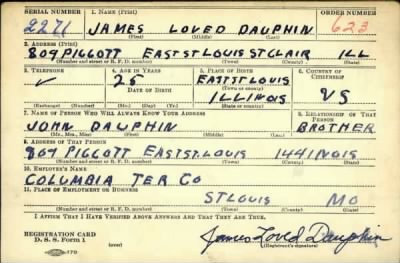 SERIAL NUMBER 1. NAME (Print) ORDER NUMBER
2271 JAMES LOVED DAUPHIN 623
(First) (Middle) (Last)
2. ADDRESS (Print)
809 PIGGOTT EAST ST LOUIS ST CLAIR ILL
(Number and street or R. F. D. number) (Town) (County) (State)
3. TELEPHONE 4. AGE IN YEARS 5. PLACE OF BIRTH 6. COUNTRY OF CITIZENSHIP
25 EAST ST LOUIS
DATE OF BIRTH (Town or county)
ILLINOIS US
(Exchange) (Number) (Mo.) (Day) (Yr.) (State or country)
7. NAME OF PERSON WHO WILL ALWAYS KNOW YOUR ADDRESS 8. RELATIONSHIP OF THAT PERSON
JOHN DAUPHIN BROTHER
(Mr., Mrs., Miss) (First) (Middle) (Last)
9. ADDRESS OF THAT PERSON
809 PIGGOTT EAST ST. LOUIS ILLINOIS
(Number and street or R. F. D. number) (Town) (County) (State)
10. EMPLOYER'S NAME
COLUMBIA TER CO
11. PLACE OF EMPLOYMENT OR BUSINESS
ST LOUIS MO
(Number and street or R. F. D. number) (Town) (County) (State)
I AFFIRM THAT I HAVE VERIFIED ABOVE ANSWERS AND THAT THEY ARE TRUE.
REGISTRATION CARD
D. S. S. Form 1 James Loved Dauphin
(Registrant's signature)